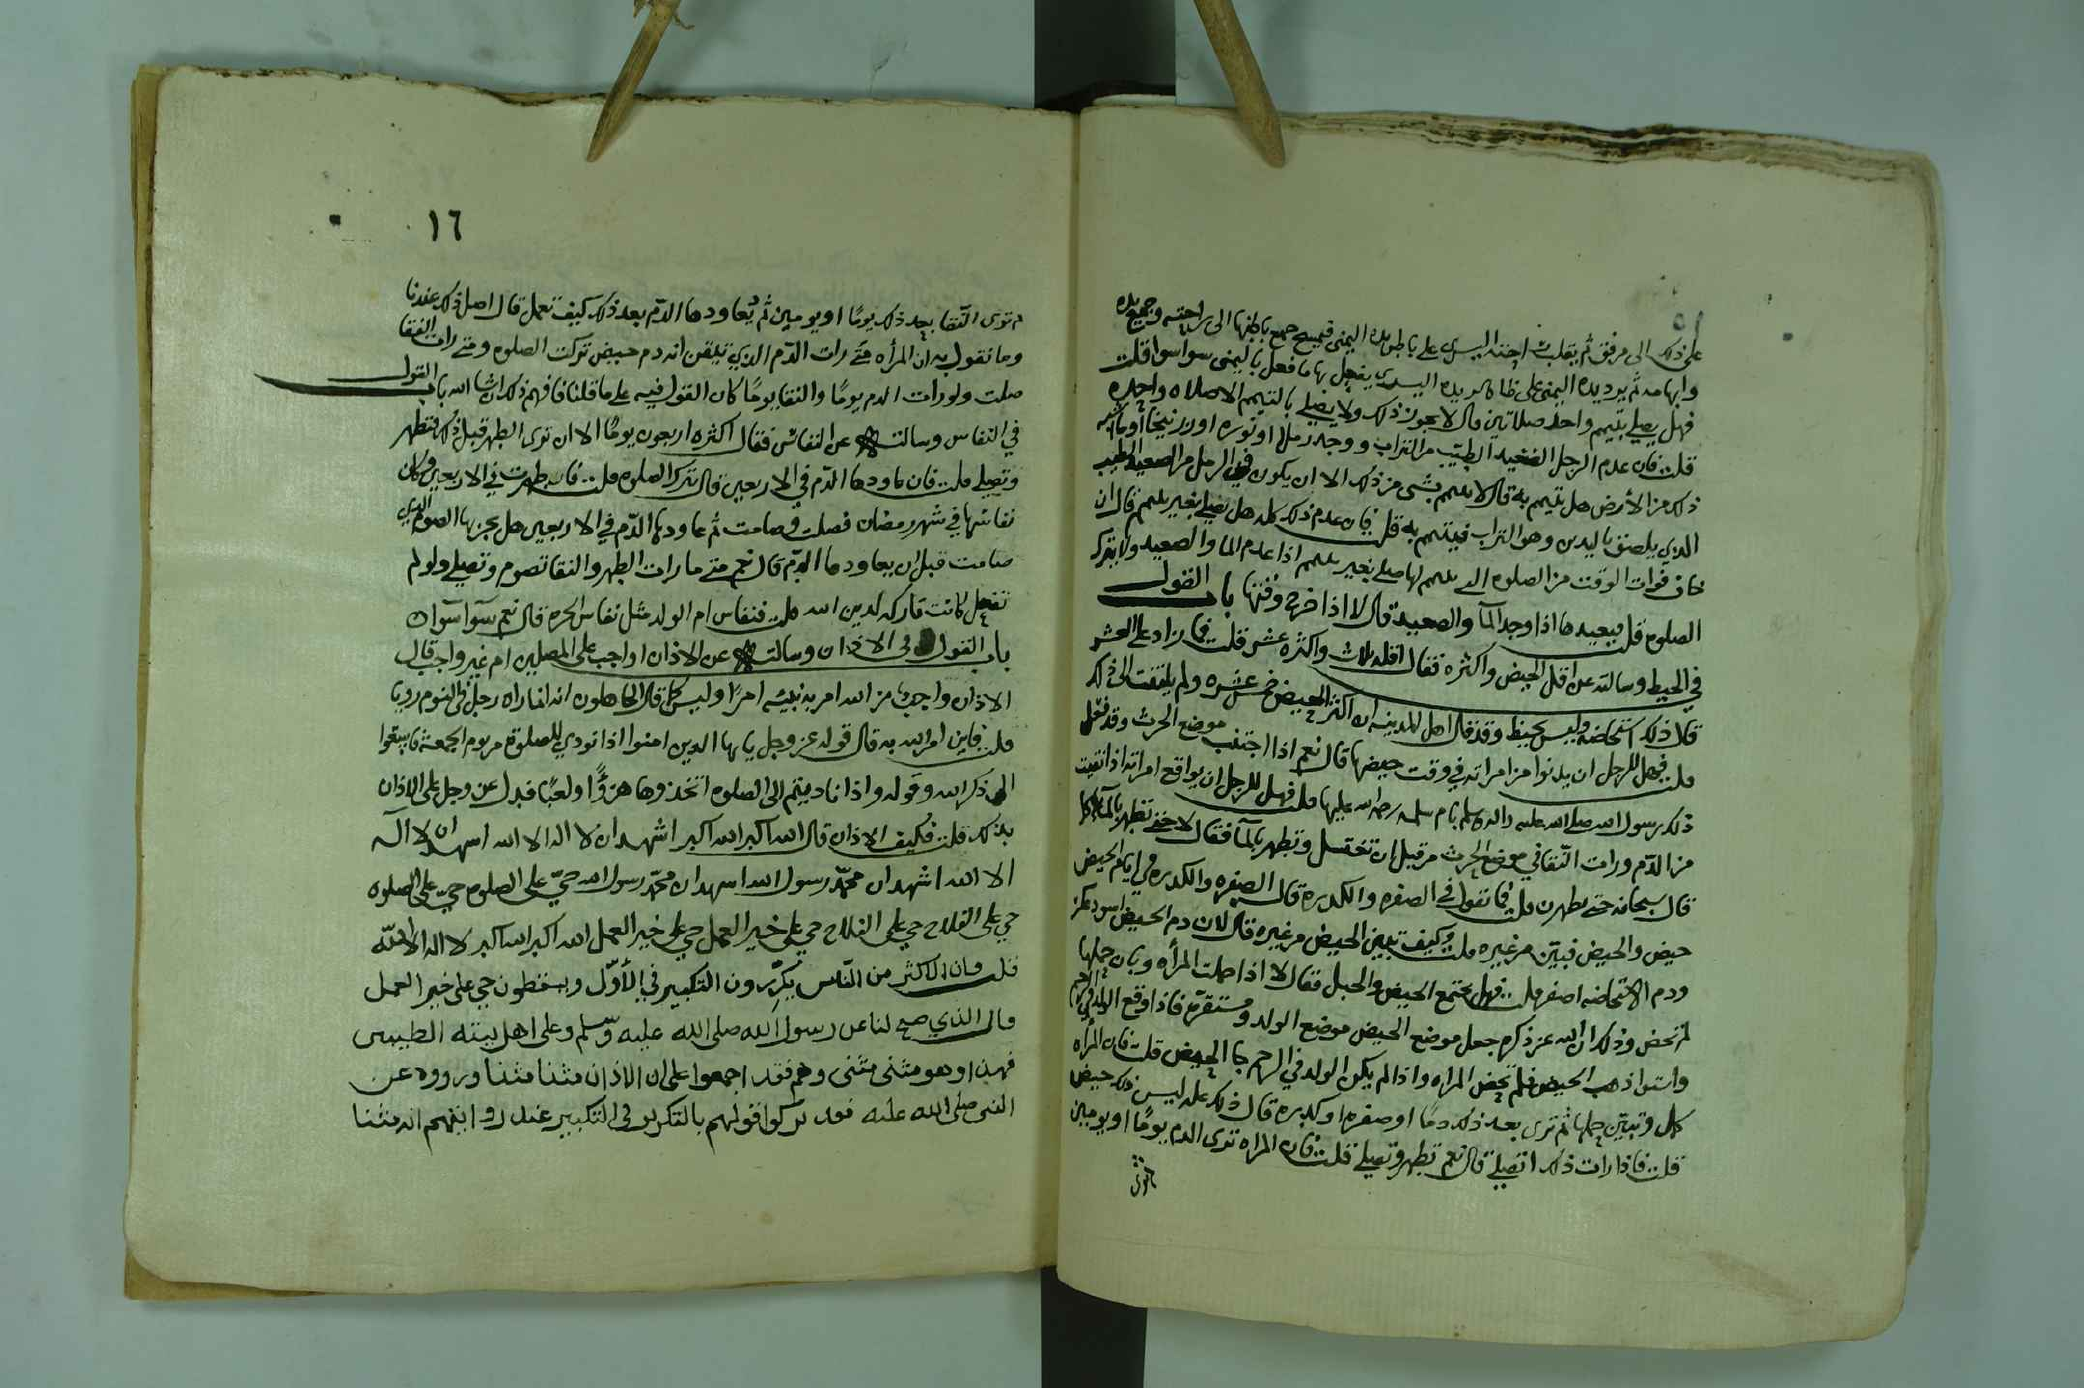 على ذلك الى مرفق ثم يقلب راحته اليسرى على باطن يده اليمنى فيمسح جميع باطنها الى راحته وجميع يده
وابهامه ثم يرد يده اليمنى على ظاهر يده اليسرى يفعل بها ما فعل باليمنى سواسوا قلت
فهل يصلى بتيمم واحد صلاتين قال لا يجوز ذلك ولا يصلى بالتيمم الا صلاه واحده
قلت فان عدم الرجل الصعيد الطيب من التراب ووجد رملا او نوره او زرنيخا او ما اشبه
ذلك من الأرض هل يتيمم به قال لا يتيمم بشى من ذلك الا ان يكون في الرمل من الصعيد الطيب
الذي يلصق باليدين وهو التراب فيتيمم به قلت فان عدم ذلك كله هل يصلى بغير تيمم قال ان
خاف فوات الوقت من الصلوه التى تيمم لها صلى بغير تيمم اذا عدم الما والصعيد ولا يترك
الصلوه قلت فيعيدها اذا وجد المآ والصعيد قال لا اذا خرج وقتها باب القول
في الحيط وسالته عن اقل الحيض واكثره فقال اقله ثلاث واكثره عشر قلت فان زاد على العشر
قال ذلك استحاضه وليس بحيظ وقد قال اهل المدينه ان اكثر الحيض خمس عشره ولم يلتفت الى ذلك
قلت فهل للرجل ان يدنوا من امراته في وقت حيضها قال نعم اذا اجتنب موضع الحرث وقد فعل
ذلك رسول الله صلى الله عليه واله وسلم بام سلمه رحمة الله عليها قلت فهل للرجل ان يواقع امراته اذا نقيت
من الدم ورات النقا في موضع الحرث من قبل ان تغتسل وتطهر بالمآ فقال لا حتى تطهر بالمآ كما
قال سبحانه حتى يطهرن قلت فما تقول في الصفره والكدره قال الصفره والكدره في ايام الحيض
حيض والحيض فبيّن من غيره قلت وكيف تبين الحيض من غيره قال لان دم الحيض اسود
ودم الاستحاضه اصفر قلت فهل يجتمع الحيض والحبل فقال لا اذا حملت المرأه وبان حملها
لم تحض وذلك ان الله عز ذكره جعل موضع الحيض موضع الولد ومستقره فاذا وقع الولد في الرحم
واستوا ذهب الحيض فلم تحض المراه واذا لم يكن الولد في الرحم جا الحيض قلت فان المرأه
وتبيّن حملها ثم ترى بعد ذلك دما او صفره او كدره قال ذلك عله ليس ذلك حيض
قلت فاذا رات ذلك اتصلى قال نعم تطهر وتصلى قلت فان المراه ترى الدم يومًا او يومين
١٦
ثم ترى النّقا بعد ذلك يومًا او يومين ثم يُعاودها الدّم بعد ذلك كيف تعمل قال اصل ذلك عندنا
وما نقول به ان المرأه متى رات الدّم الذي تيقن انه دم حيض تركت الصلوه ومتى رات النقا
صلت ولو رات الدم يومًا والنقا يومًا كان القول فيه على ما قلنا فافهم ذلك ان شا الله باب القول
في النفاس وسالته عن النفاس فقال اكثره اربعون يومًا الا ان ترى الطهر قبل ذلك فتطهر
وتصلى قلت فان عاودها الدّم في الاربعين قال تترك الصلوه قلت فان طهرت في الاربعين وكان
نفاسها في شهر رمضان فصلت وصامت ثم عاودها الدّم في الاربعين هل يجزيها الصوم الذي
صامت قبل ان يعاودها الدّم قال نعم متى ما رات الطهر والنقا تصوم وتصلى ولو لم
تفعل كانت تاركه لدين الله قلت فنفاس ام الولد مثل نفاس الحره قال نعم سوآ سوآ
باب القول في الاذان وسالته عن الاذان اواجب على المصلين ام غير واجب قال
الاذان واجب من الله امر به نبيّه امرًا وليس كما قال الجاهلون انه انما راه رجل في النوم رويا
قلت فاين امر الله به قال قوله عز وجل يايها الذين امنوا اذا نودي للصلوة من يوم الجمعة فاسعوا
الى ذكر الله وقوله واذا ناديتم الى الصلوه اتخذوها هزوًا ولعبًا فدل عز وجل على الاذان
بذلك قلت فكيف الاذان قال الله اكبر الله اكبر اشهد ان لا اله الا الله اشهد ان لا اله
الا الله اشهد ان محمّد رسول الله اشهد ان محمّد رسول الله حيّ على الصلوه حي على الصلوه
حي على الفلاح حي على الفلاح حي على خير العمل حي على خير العمل الله اكبر الله اكبر لا اله الا الله
قلت فان الاكثر من النّاس يكرّرون التكبير في الأوّل ويسقطون حي على خير العمل
قال الذي صح لنا عن رسول الله صلى الله عليه وسلم وعلى اهل بيته الطيبين
فهذا وهو مثنى مثنى وهم فقد اجمعوا على ان الاذان مثنا مثنا ورووه عن
النبى صلى الله عليه فقد تركوا قولهم بالتكرير في التكبير عند روايتهم انه مثنا